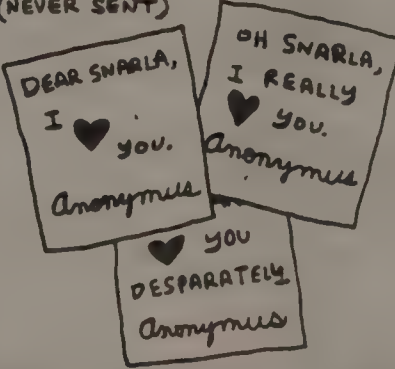 (NEVER SENT)
DEAR SNARLA,
I ♥ YOU.
Anonymus
OH SNARLA,
I REALLY
♥ YOU.
Anonymus
♥ YOU
DESPARATELY
Anonymus